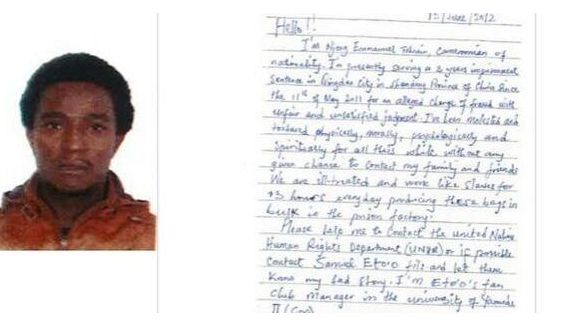 13/June/2012
Hello!!
I'm Njong Emmanuel Tohnain, Cameroonian of
nationality. I'm currently serving a 3 years imprisonment
sentence in Qingdao City in Shandong Province of China since
the 11th of May 2011 for an alleged charge of fraud with
unfair and unsatisfied judgment. I've been molested and
tortured physically, morally, psychologically and
spiritually for all this while without any
given chance to contact my family and friends
We are ill-treated and work like slaves for
13 hours everyday producing these bags in
bulk in the prison factory.
Please help me to contact the United Nations
Human Rights Department or if possible
contact Samuel Eto'o fils and let them
know my sad story. I'm Eto'o's fan
club manager in the university of Yaounde
II (Cmr)